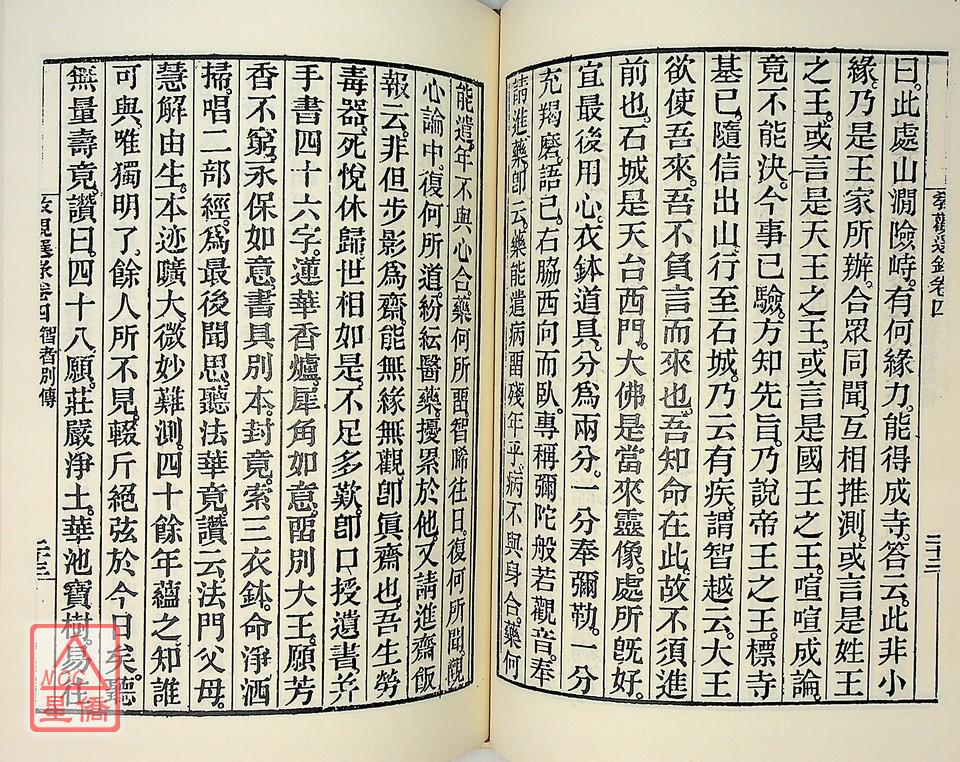 曰。此處山澗險峙。有何緣力。能得成寺。答云。此非小
緣。乃是王家所辦。合眾同聞。互相推測。或言是姓王
之王。或言是天王之王。或言是國王之王。喧喧成論。
竟不能決。今事已驗。方知先旨。乃說帝王之王。標寺
基已。隨信出山。行至石城。乃云有疾。謂智越云。大王
欲使吾來。吾不負言而來也。吾知命在此。故不須進
前也。石城是天台西門。大佛是當來靈像。處所既好。
宜最後用心。衣鉢道具。分為兩分。一分奉彌勒。一分
充羯磨。語已。右脇西向而臥。專稱彌陀般若觀音。奉
請進藥。即云。藥能遣病畱殘年乎。病不與身合。藥何
教觀選錄卷四
二十二
能遣。年不與心合。藥何所畱。智晞往日。復何所聞。觀
心論中。復何所道。紛紜醫藥。擾累於他。又請進齋飯。
報云。非但步影為齋。能無緣無觀。即真齋也。吾生勞
毒器。死悅休歸。世相如是。不足多歎。即口授遺書。并
手書四十六字。蓮華香爐。犀角如意。畱別大王。願芳
香不窮。永保如意。書具別本。封竟。索三衣鉢。命淨洒
掃。唱二部經。為最後聞思。聽法華竟。讚云。法門父母。
慧解由生。本迹曠大。微妙難測。四十餘年蘊之。知誰
可與。唯獨明了。餘人所不見。輟斤絕弦於今日矣。聽
無量壽竟。讚曰。四十八願。莊嚴淨土。華池寶樹。易往
教觀選錄卷四 智者別傳
二十三
MCC
星僑